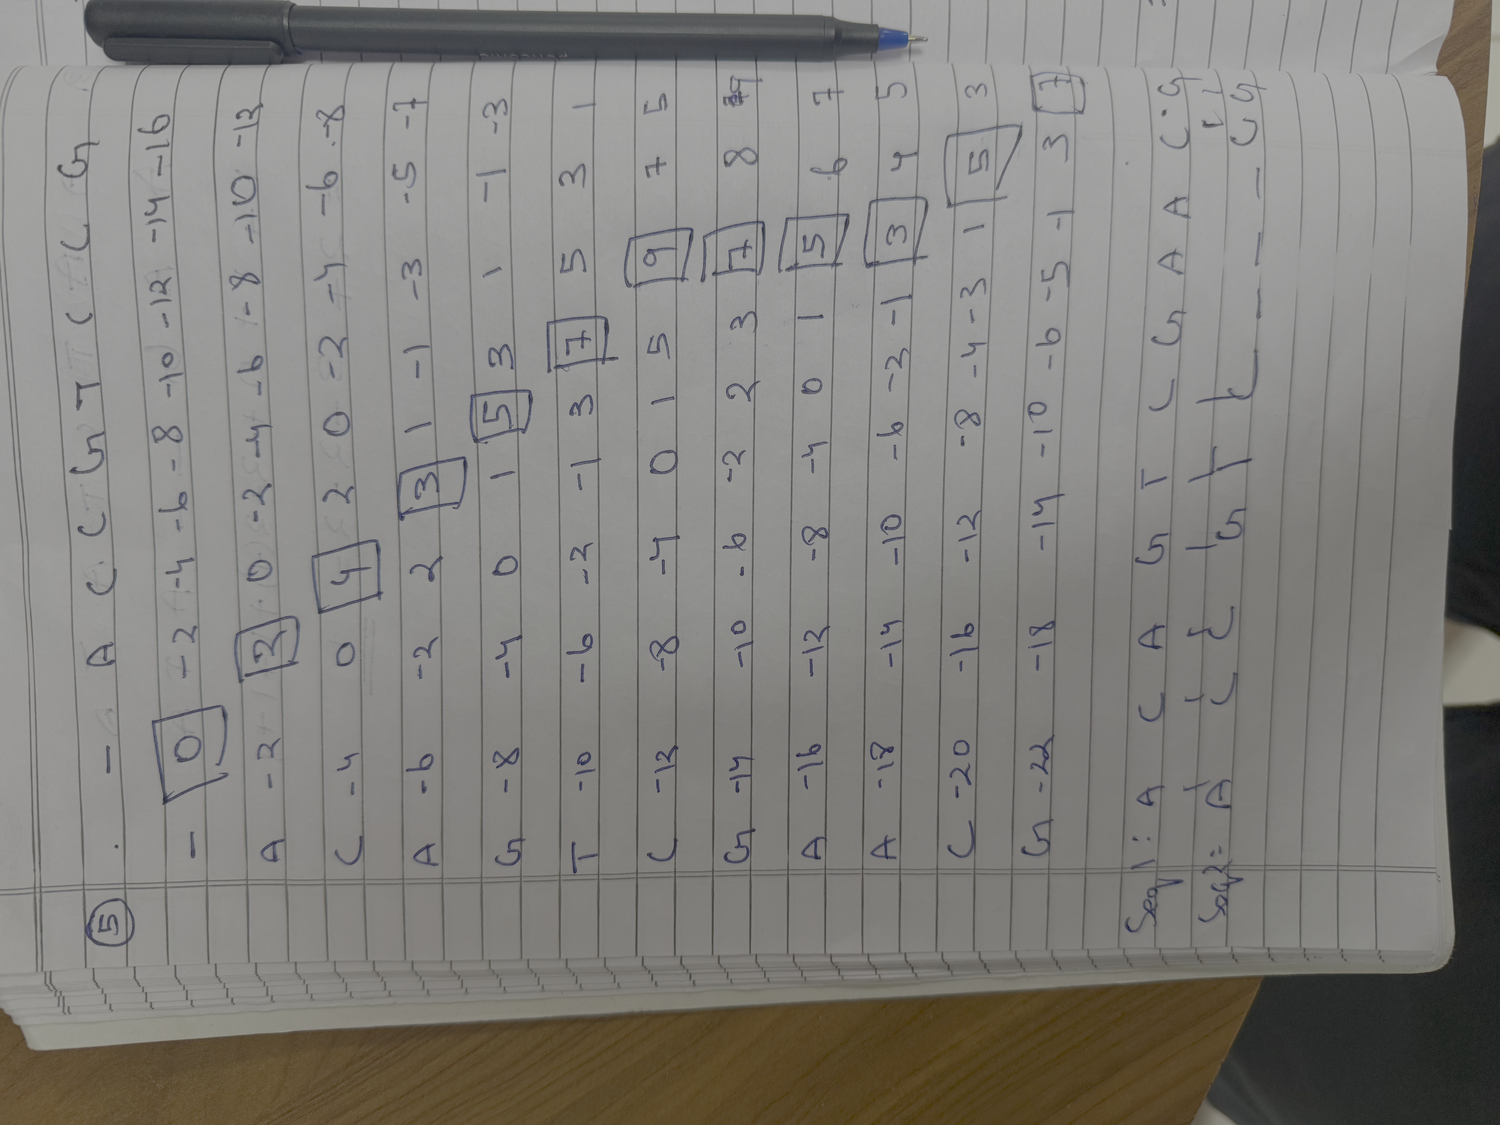 5
- A C C G T C C G
- 0 -2 -4 -6 -8 -10 -12 -14 -16
A -2 2 0 -2 -4 -6 -8 -10 -12
C -4 0 4 2 0 -2 -4 -6 -8
A -6 -2 2 3 1 -1 -3 -5 -7
G -8 -4 0 1 5 3 1 -1 -3
T -10 -6 -2 -1 3 7 5 3 1
C -12 -8 -4 0 1 5 9 7 5
G -14 -10 -6 -2 2 3 7 8
A -16 -12 -8 -4 0 1 5 6 7
A -18 -14 -10 -6 -2 -1 3 4 5
C -20 -16 -12 -8 -4 -3 1 5 3
G -22 -18 -14 -10 -6 -5 -1 3 7
Seq 1: A C A G T C G A A C G
Seq 2= A C C G T C - - - C G